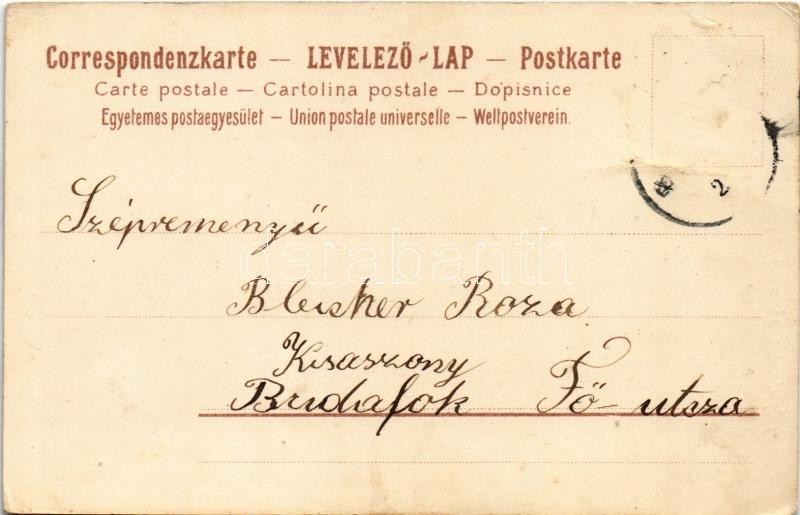 Correspondenzkarte — LEVELEZŐ-LAP — Postkarte
Carte postale — Cartolina postale — Dopisnice
Egyetemes postaegyesület — Union postale universelle — Weltpostverein.
2
Szépremenyű
darabanth
Bleisker Roza
Kisaszony
Budafok Fő-utsza